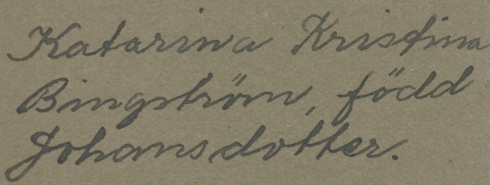 Katarina Kristina
Bingström, född
Johansdotter.